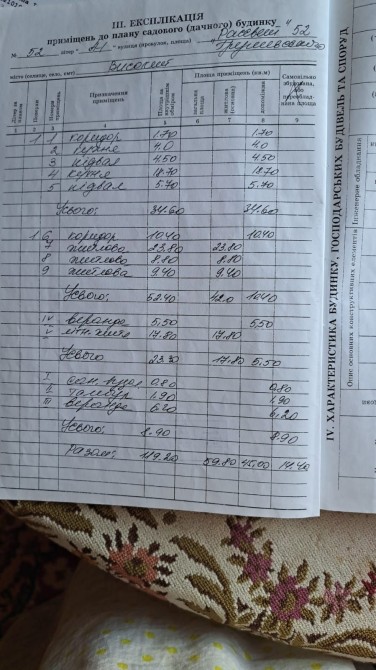 III. ЕКСПЛІКАЦІЯ
приміщень до плану садового (дачного) будинку
№ 52 літер "А" вулиця (провулок, площа) 52
місто (селище, село, смт) Високий
Призначення приміщень
Площа за внутрішнім обміром
Площа приміщень (кв.м)
загальна площа
житлова (основна)
допоміжна
1 2 3 4 5 6 7 8 9
1 1 коридор 1.70 1.70
2 кухня 4.0 4.0
3 підвал 4.50 4.50
4 кухня 18.70 18.70
5 підвал 5.70 5.70
Усього: 34.60 34.60
1 6 коридор 10.40 10.40
7 житлова 23.80 23.80
8 житлова 8.80 8.80
9 житлова 9.40 9.40
Усього: 52.40 42.0 10.40
IV веранда 5,50 5,50
V 17.80 17.80
Усього 23.30 17.80 5,50
I 0.80 0.80
II Тамбур 1.90 1.90
III веранда 6.20 6.20
Усього: 8.90 8.90
Разом: 119.20 59.80 45.00 14.40
IV. ХАРАКТЕРИСТИКА БУДИНКУ, ГОСПОДАРСЬКИХ БУДІВЕЛЬ ТА СПОРУД
Опис основних конструктивних елементів
Інженерне обладнання